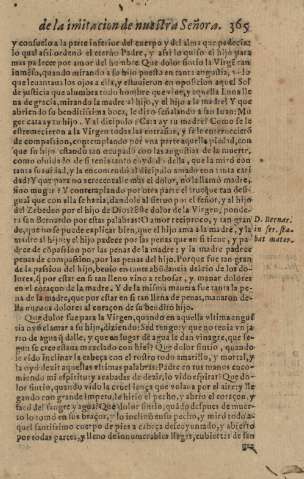 de la imitacion de nuestra Señora. 365
y consuelo a la parte inferior del cuerpo y del alma que padecia:
lo qual assi ordenò el eterno Padre, y assi lo quiso el hijo para
mas padecer por amor del hombre Que dolor sintio la Virgẽ tan
inmẽso, quando mirando a su hijo puesto en tanta angustia,
que leuantauan los ojos a ella, y estuuieron en oposicion aquel Sol
de justicia que alumbra todo hombre que viue, y aquella Luna lle
na de gracia, mirando la madre al hijo, y el hijo a la madre! Y que
abriendo su benditissima boca, le dixo señalando a san Iuan: Mu
ger cata ay tu hijo. Y al discipulo: Cata ay tu madre! Como se le
estremecieron a la Virgen todas las entrañas, y se le enternecio
de compassion, contemplando por vna parte aquella piedad, con
que su hijo estando tan ocupado con las angustias de la muerte,
como oluidado de si tenia tanto cuydado della, que la mirò con
tanta suauidad, y la encomendò al discipulo amado con tanta cari
dad? Y que para no acrecentalle mas el dolor, no la llamò madre,
sino muger? Y contemplando por otra parte el trueque tan desi
gual que con ella se hazia, dandole al sieruo por el señor, y al hijo
del Zebedeo por el hijo de Dios? Este dolor de la Virgen, ponde
ra san Bernardo por estas palabras: O amor reciproco, y tan gran
de, que no se puede explicar bien, que el hijo ama a la madre, y la
madre al hijo; y el hijo padece por las penas que en si tiene, y pa
dece de cõpassion por las penas de la madre: y la madre padece
penas de compassion, por las penas del hijo. Porque fue tan gran
de la passion del hijo,
lores, que estar en si tan lleno vino a rebosar, y manar dolores
en el coraçon de la madre. Y de la misma manera fue tanta la pe
na de la madre, que por estar en si tan llena de penas, manaron de
lla nueuos dolores al coraçon de su bendito hijo.
D. Bernar.
in ser. sta-
bat mater.
Que dolor fue para la Virgen, quando en aquella vltima angus
tia oyò clamar a su hijo, diziendo: Sed tengo: y que no tenia vn jar
ro de agua que dalle, y que en lugar de agua le dan vinagre, que se
gun se cree estaua mezclado con hiel? Que dolor sintio, quando
le vido inclinar la cabeça con el rostro todo amarillo, y mortal, y
la oyò dezir aquellas vltimas palabras: Padre en tus manos enco-
miendo mi espiritu: y acabadas de dezir, lo vido espirar? Que do-
lor sintio, quando vido la cruel lança que volaua por el ayre: y lle
gando con grande impetu, le hirio el pecho, y abrio el coraçon, y
sacò del sangre y agua? Que dolor sintio, quãdo despues de muer
to lo tomò en sus braços, lo inclinò en su pecho, y mirò todo a-
quel santissimo cuerpo de pies a cabeça descoyuntado, y abierto
por todas partes, y lleno de innumerables llagas, cubiertas de san
gre